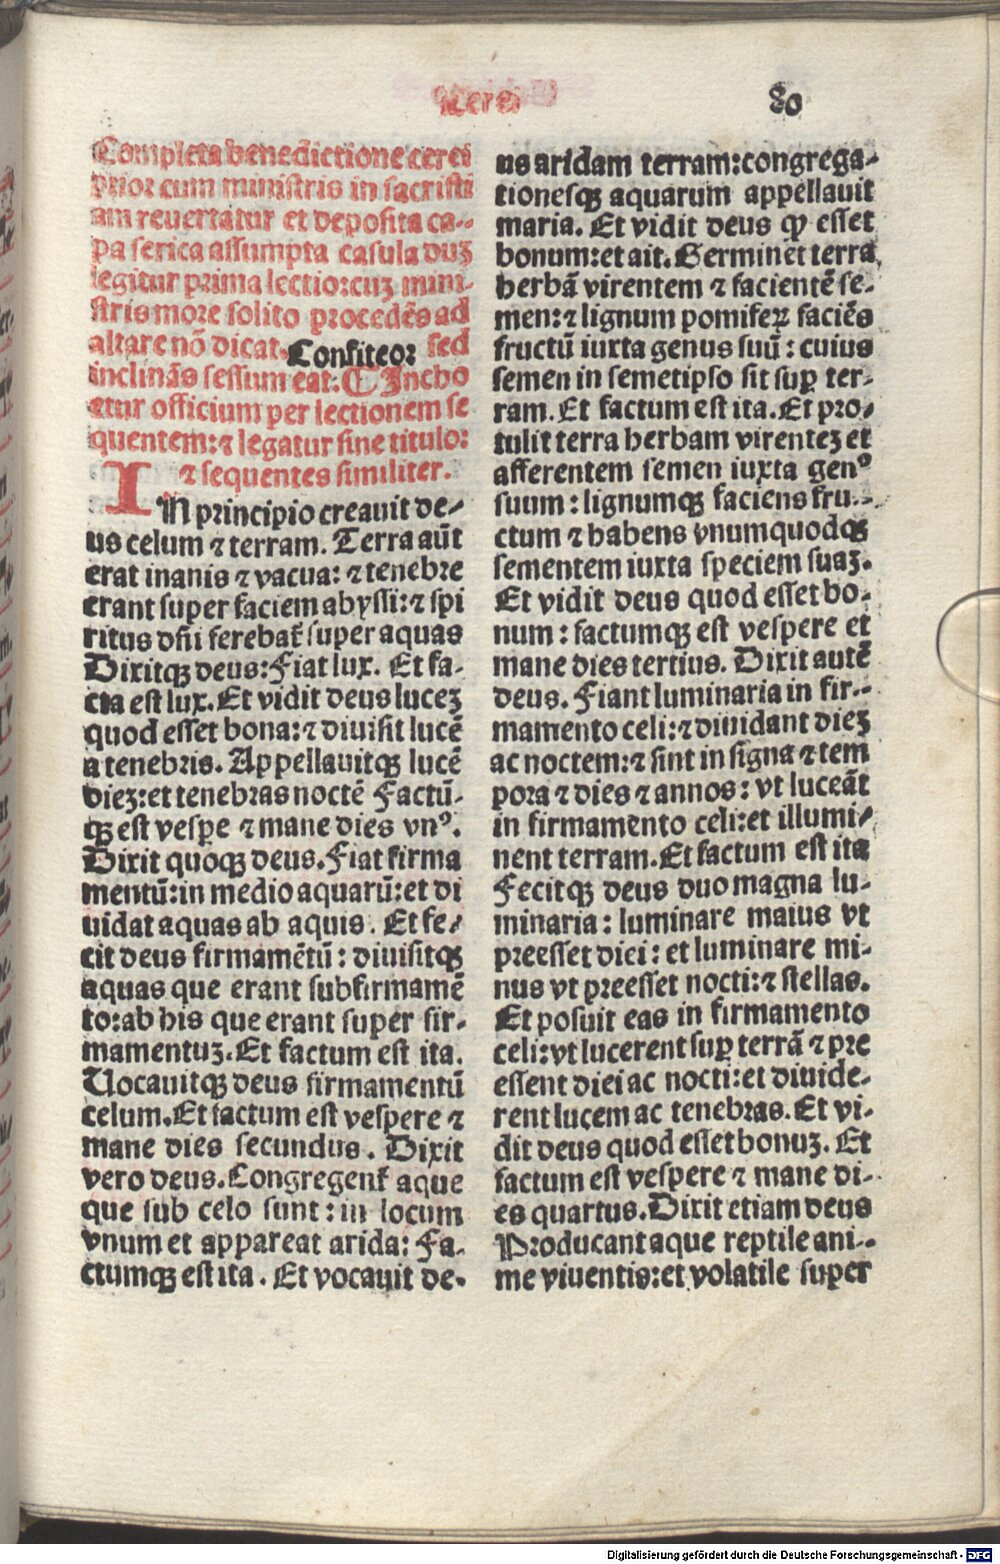 80
Completa benedictione cerei
prior cum ministris in sacristi
am reuertatur et deposita ca-
pa serica assumpta casula duꝫ
legitur prima lectio: cuꝫ mini-
stris more solito procedēs ad
altare nō dicat. Confiteor sed
inclinās sessum eat. ¶ Incho
etur officium per lectionem se
quentem: ⁊ legatur sine titulo:
⁊ sequentes similiter.
IN principio creauit de/
us celum ⁊ terram. Terra aūt
erat inanis ⁊ vacua: ⁊ tenebre
erant super faciem abyssi: ⁊ spi
ritus dn̄i ferebat᷑ super aquas
Dixitqꝫ deus: Fiat lux. Et fa-
cta est lux. Et vidit deus luceꝫ
quod esset bona: ⁊ diuisit lucē
a tenebris. Appellauitqꝫ lucē
dieꝫ: et tenebras noctē Factū-
qꝫ est vesꝑe ⁊ mane dies vnꝰ.
Dixit quoqꝫ deus. Fiat firma
mentū: in medio aquarū: et di
uidat aquas ab aquis. Et fe/
cit deus firmamētū: diuisitqꝫ
aquas que erant sub firmamē
to: ab his que erant super fir-
mamentuꝫ. Et factum est ita.
Uocauitqꝫ deus firmamentū
celum. Et factum est vespere ⁊
mane dies secundus. Dixit
vero deus. Congregent᷑ aque
que sub celo sunt: in locum
vnum et appareat arida: Fa-
ctumqꝫ est ita. Et vocauit de-
us aridam terram: congrega-
tionesqꝫ aquarum appellauit
maria. Et vidit deus ꝙ esset
bonum: et ait. Germinet terra
herbā virentem ⁊ facientē se-
men: ⁊ lignum pomiferꝫ faciēs
fructū iuxta genus suū: cuius
semen in semetipso sit suꝑ ter-
ram. Et factum est ita. Et pro/
tulit terra herbam virenteꝫ et
afferentem semen iuxta genꝰ
suum: lignumqꝫ faciens fru-
ctum ⁊ habens vnumquodqꝫ
sementem iuxta speciem suaꝫ.
Et vidit deus quod esset bo-
num: factumqꝫ est vespere et
mane dies tertius. Dixit autē
deus. Fiant luminaria in fir-
mamento celi: ⁊ diuidant dieꝫ
ac noctem: ⁊ sint in signa ⁊ tem
pora ⁊ dies ⁊ annos: vt luceāt
in firmamento celi: et illumi/
nent terram. Et factum est ita
Fecitqꝫ deus duo magna lu-
minaria: luminare maius vt
preesset diei: et luminare mi-
nus vt preesset nocti: ⁊ stellas.
Et posuit eas in firmamento
celi: vt lucerent suꝑ terrā ⁊ pre
essent diei ac nocti: et diuide-
rent lucem ac tenebras. Et vi-
dit deus quod esset bonuꝫ. Et
factum est vespere ⁊ mane di-
es quartus. Dixit etiam deus
Producant aque reptile ani-
me viuentis: et volatile super
Digitalisierung gefördert durch die Deutsche Forschungsgemeinschaft - DFG